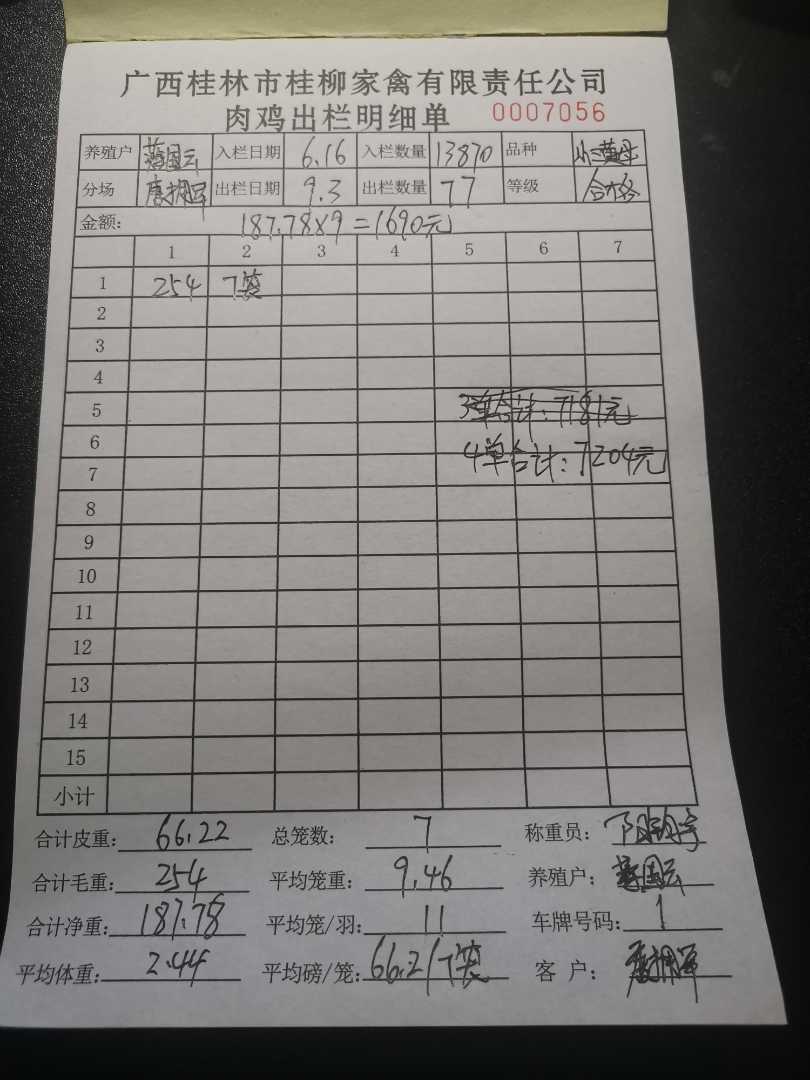 广西桂林市桂柳家禽有限责任公司
肉鸡出栏明细单 0007056
养殖户 蒋国云 入栏日期 6.16 入栏数量 13870 品种
分场 出栏日期 9.3 出栏数量 77 等级 合格
金额: 187.78×9=1690元
1 2 3 4 5 6 7
1 254 7笼
2
3
4
5 3单合计:7181元
6 4单合计:7204元
7
8
9
10
11
12
13
14
15
小计
合计皮重: 66.22 总笼数: 7 称重员:
合计毛重: 254 平均笼重: 9.46 养殖户: 蒋国云
合计净重: 187.78 平均笼/羽: 11 车牌号码: 1
平均体重: 2.44 平均磅/笼: 66.2/7笼 客户: